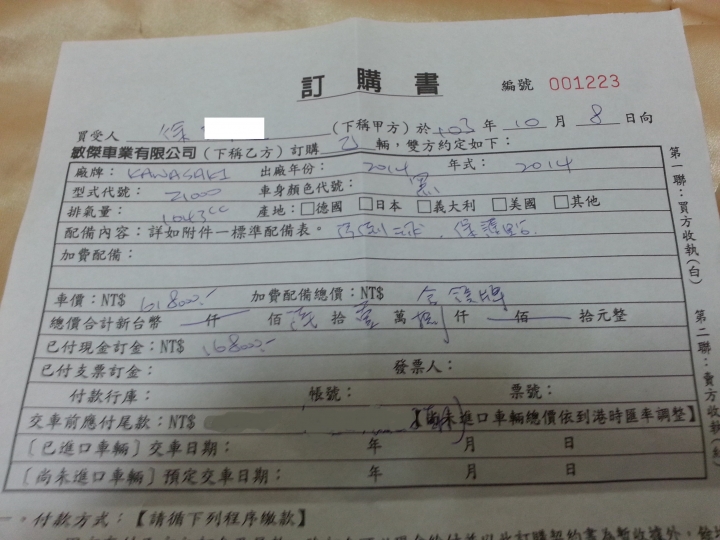 訂購書
編號 001223
買受人 徐 (下稱甲方)於103年10月8日向
敏傑車業有限公司(下稱乙方)訂購 乙 輛,雙方約定如下:
廠牌:KAWASAKI 出廠年份:2014 年式:2014
型式代號:Z1000 車身顏色代號:黑
排氣量:1043cc 產地:□德國 □日本 □義大利 □美國 □其他
配備內容:詳如附件一標準配備表。
加費配備:
車價:NT$ 618000.- 加費配備總價:NT$ 含領牌
總價合計新台幣 仟 佰 陸 拾 壹 萬 捌 仟 佰 拾元整
已付現金訂金:NT$ 168000.-
已付支票訂金: 發票人:
付款行庫: 帳號: 票號:
交車前應付尾款:NT$ 【尚未進口車輛總價依到港時匯率調整】
〔已進口車輛〕交車日期: 年 月 日
〔尚未進口車輛〕預定交車日期: 年 月 日
一、付款方式:【請循下列程序繳款】
第一聯:買方收執(白)
第二聯:賣方收執(紅